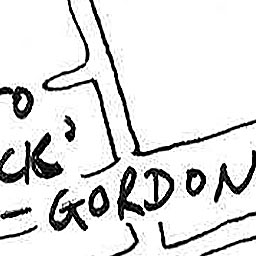 TO
CK'
- GORDON